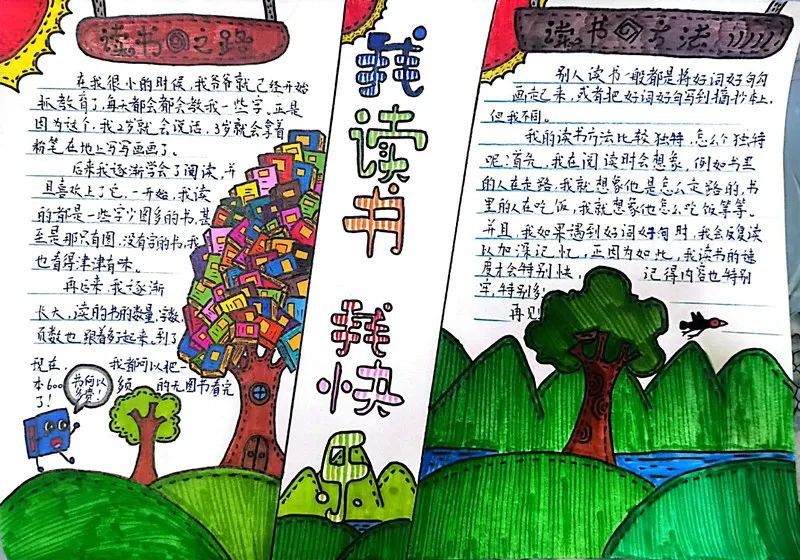 读书之路
在我很小的时候,我爷爷就已经开始
抓教育了,每天都会都会教我一些字,正是
因为这个,我2岁就会说话,3岁就会拿着
粉笔在地上写写画画了。
后来我逐渐学会了阅读,并
且喜欢上了它,一开始,我读
的都是一些字少图多的书,甚
至是那只有图,没有言的书,我
也看得津津有味。
再后来,我逐渐
长大,读的书的数量,字数
页数也跟着多起来,到了
现在,我都可以把一
本600多页的无图书看完
了!
书何以
多费!
我读书
我快乐
读书方法
别人读书一般都是将好词好句勾
画起来,或者把好词好句写到摘抄本上,
但我不同。
我的读书方法比较独特,怎么个独特
呢?首先,我在阅读时会想象,例如书里
的人在走路,我就想象他是怎么走路的,书
里的人在吃饭,我就想象他怎么吃饭等等。
并且,我如果遇到好词好句时,我会反复读
以加深记忆,正因为如此,我读书的速
度才会特别快,记得内容也特别
牢,特别多!
再见